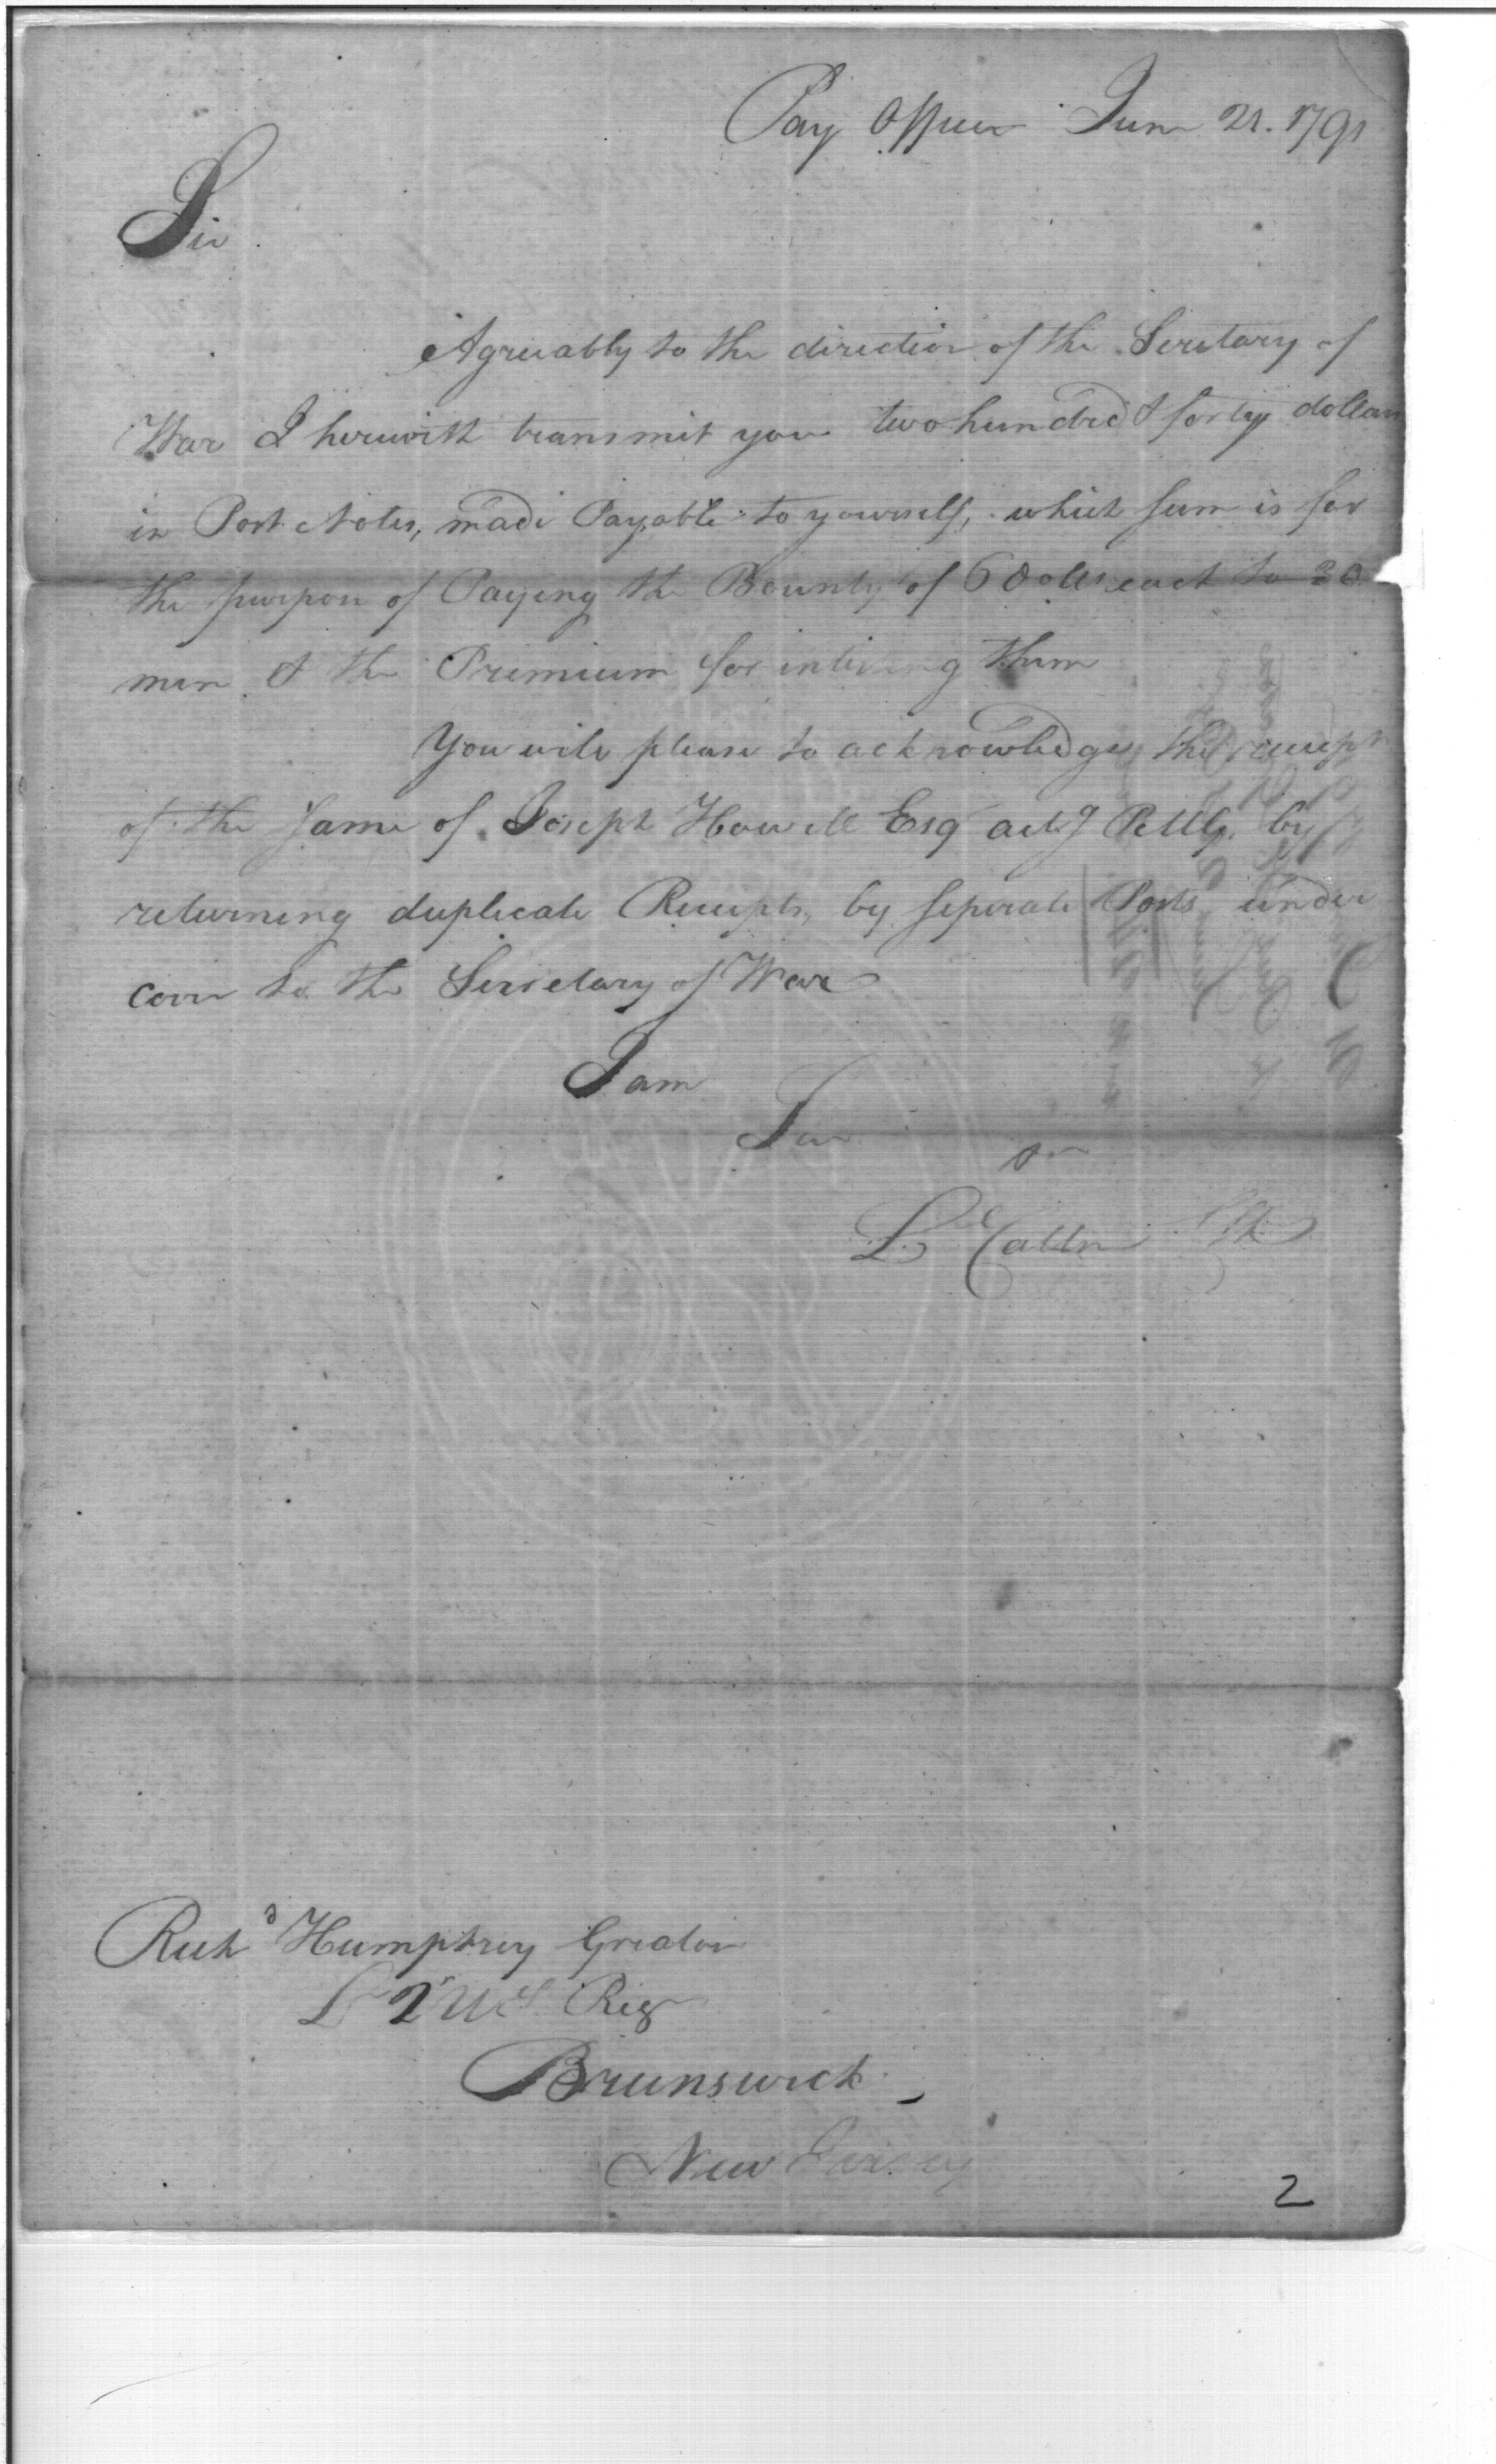 Pay Office June 21. 1791
Sir
Agreeably to the direction of the Secretary of
War I herewith transmit you two hundred & forty dollars
in Post Notes, made Payable to yourself, which sum is for
the purpose of Paying the Bounty of 6 Dolls each to 30
men & the Premium for inlisting them
You will please to acknowledge the receipt
of the same of Joseph Howell Esq actg P.M.G. by
returning duplicate Receipts, by seperate Posts under
cover to the Secretary of War
I am
Sir
Richd Humphrey Greaton
Lt 2 US Reg
Brunswick
New Jersey
2